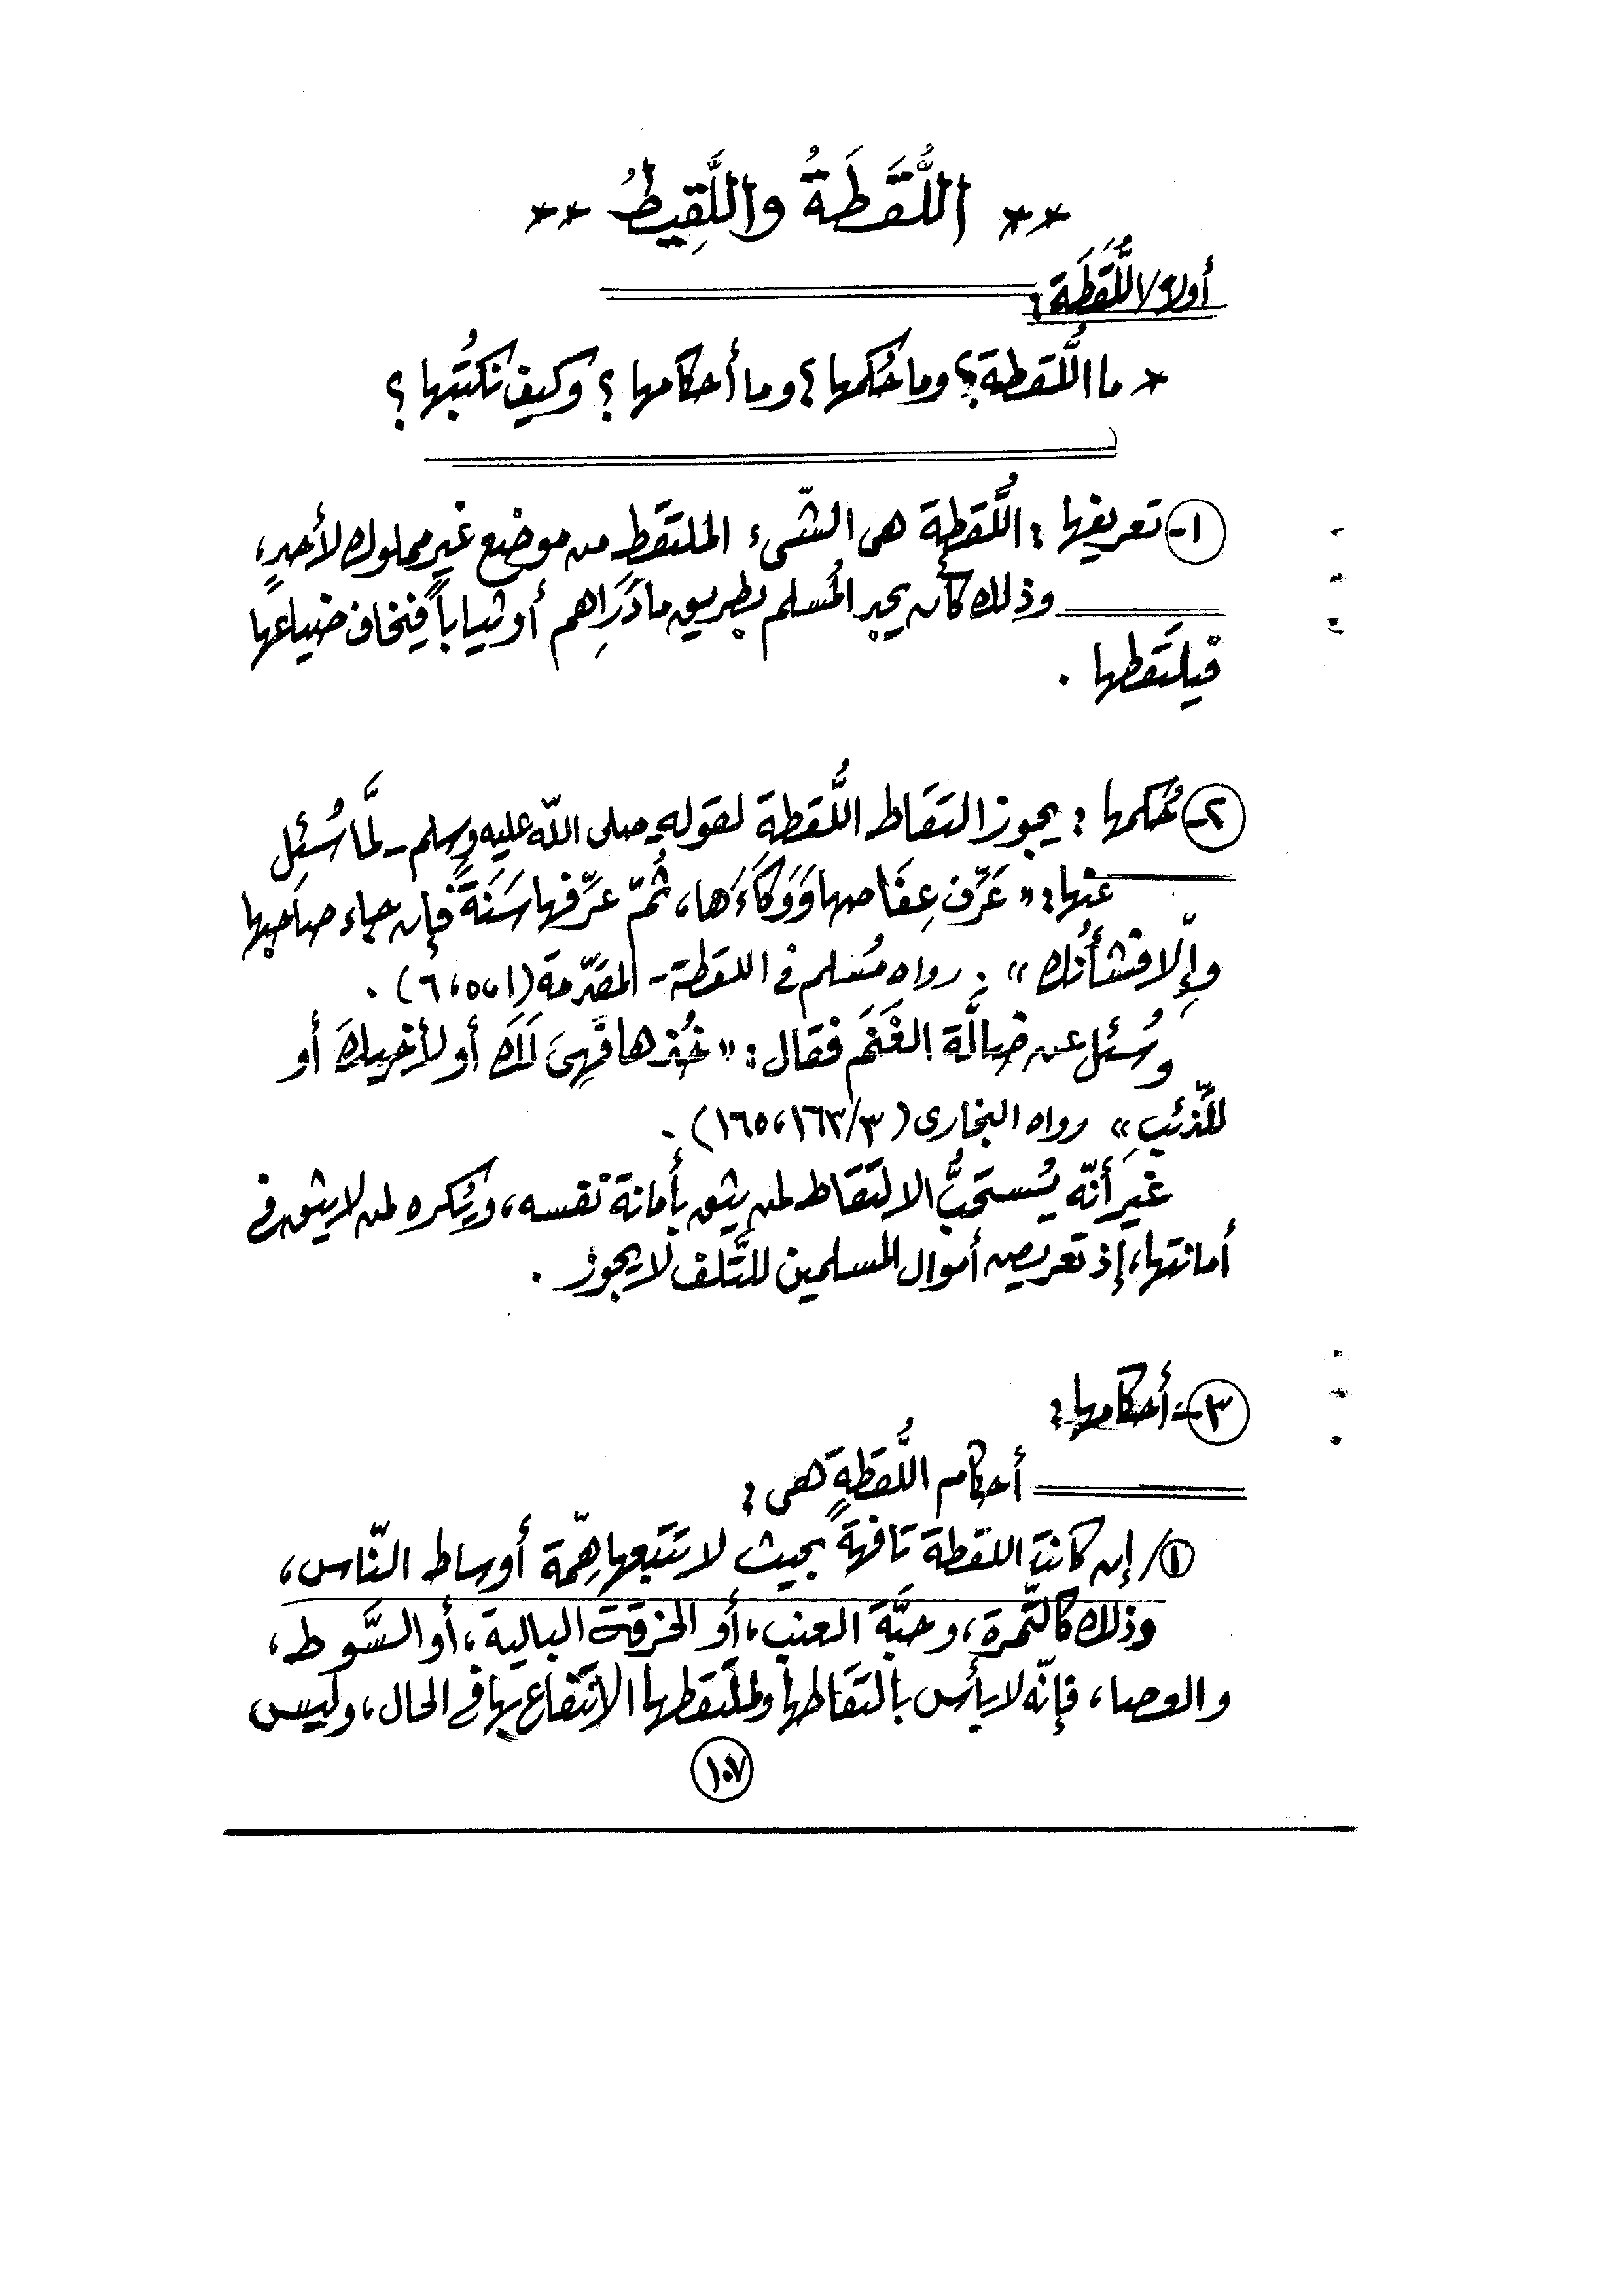 ** اللُّقَطَةُ واللَّقِيطُ **
أولاً/ اللُّقَطَة:
* ما اللُّقطة؟ وما حُكمها؟ وما أحكامها؟ وكيف نكتُبها؟
١- تعريفها: اللُّقطة هى الشّىء الملتقَط من موضع غير مملوك لأحدٍ،
وذلك كأن يجد المُسلم بطريق ما دَرَاهم أو ثياباً فيخاف ضياعها
فيلتَقطها.
٢- حُكمها: يجوز التقَاط اللُّقطة لقوله - صلى اللّه عليه وسلم - لمَّا سُئِل
عنها: «عَرِّف عِفَاصها وَوَكَاءَها، ثُمّ عرِّفها سَنَةً فإن جاء صاحبها
وإلّا فشأنُك». رواه مُسلم فى اللقطة - المقدّمة (١،٥،٦).
وسُئل عن ضالَّة الغَنَم فقال: «خُذها فهِىَ لَكَ أو لأخيكَ أو
للذّئبِ» رواه البخارى (١٦٣/٣، ١٦٥).
غير أنّه يُستحَبُّ الالتقَاط لمن يثق بأمانة نفسه، ويُكره لمن لا يثق فى
أمانتها، إذ تعريض أموال المسلمين للتَّلف لا يجوز.
٣- أحكامها:
أحكام اللُّقطةِ هى:
١/ إن كانت اللقطة تافهةً بحيث لا تتبعها هِمّة أوساط النّاس،
وذلك كالتّمرة، وحبَّة العنب، أو الخرقة البالية، أو السَّوط،
والعصا، فإنّه لا بأس بالتقَاطها ولملتقطها الانتفاع بها فى الحال، وليس
١٠٧